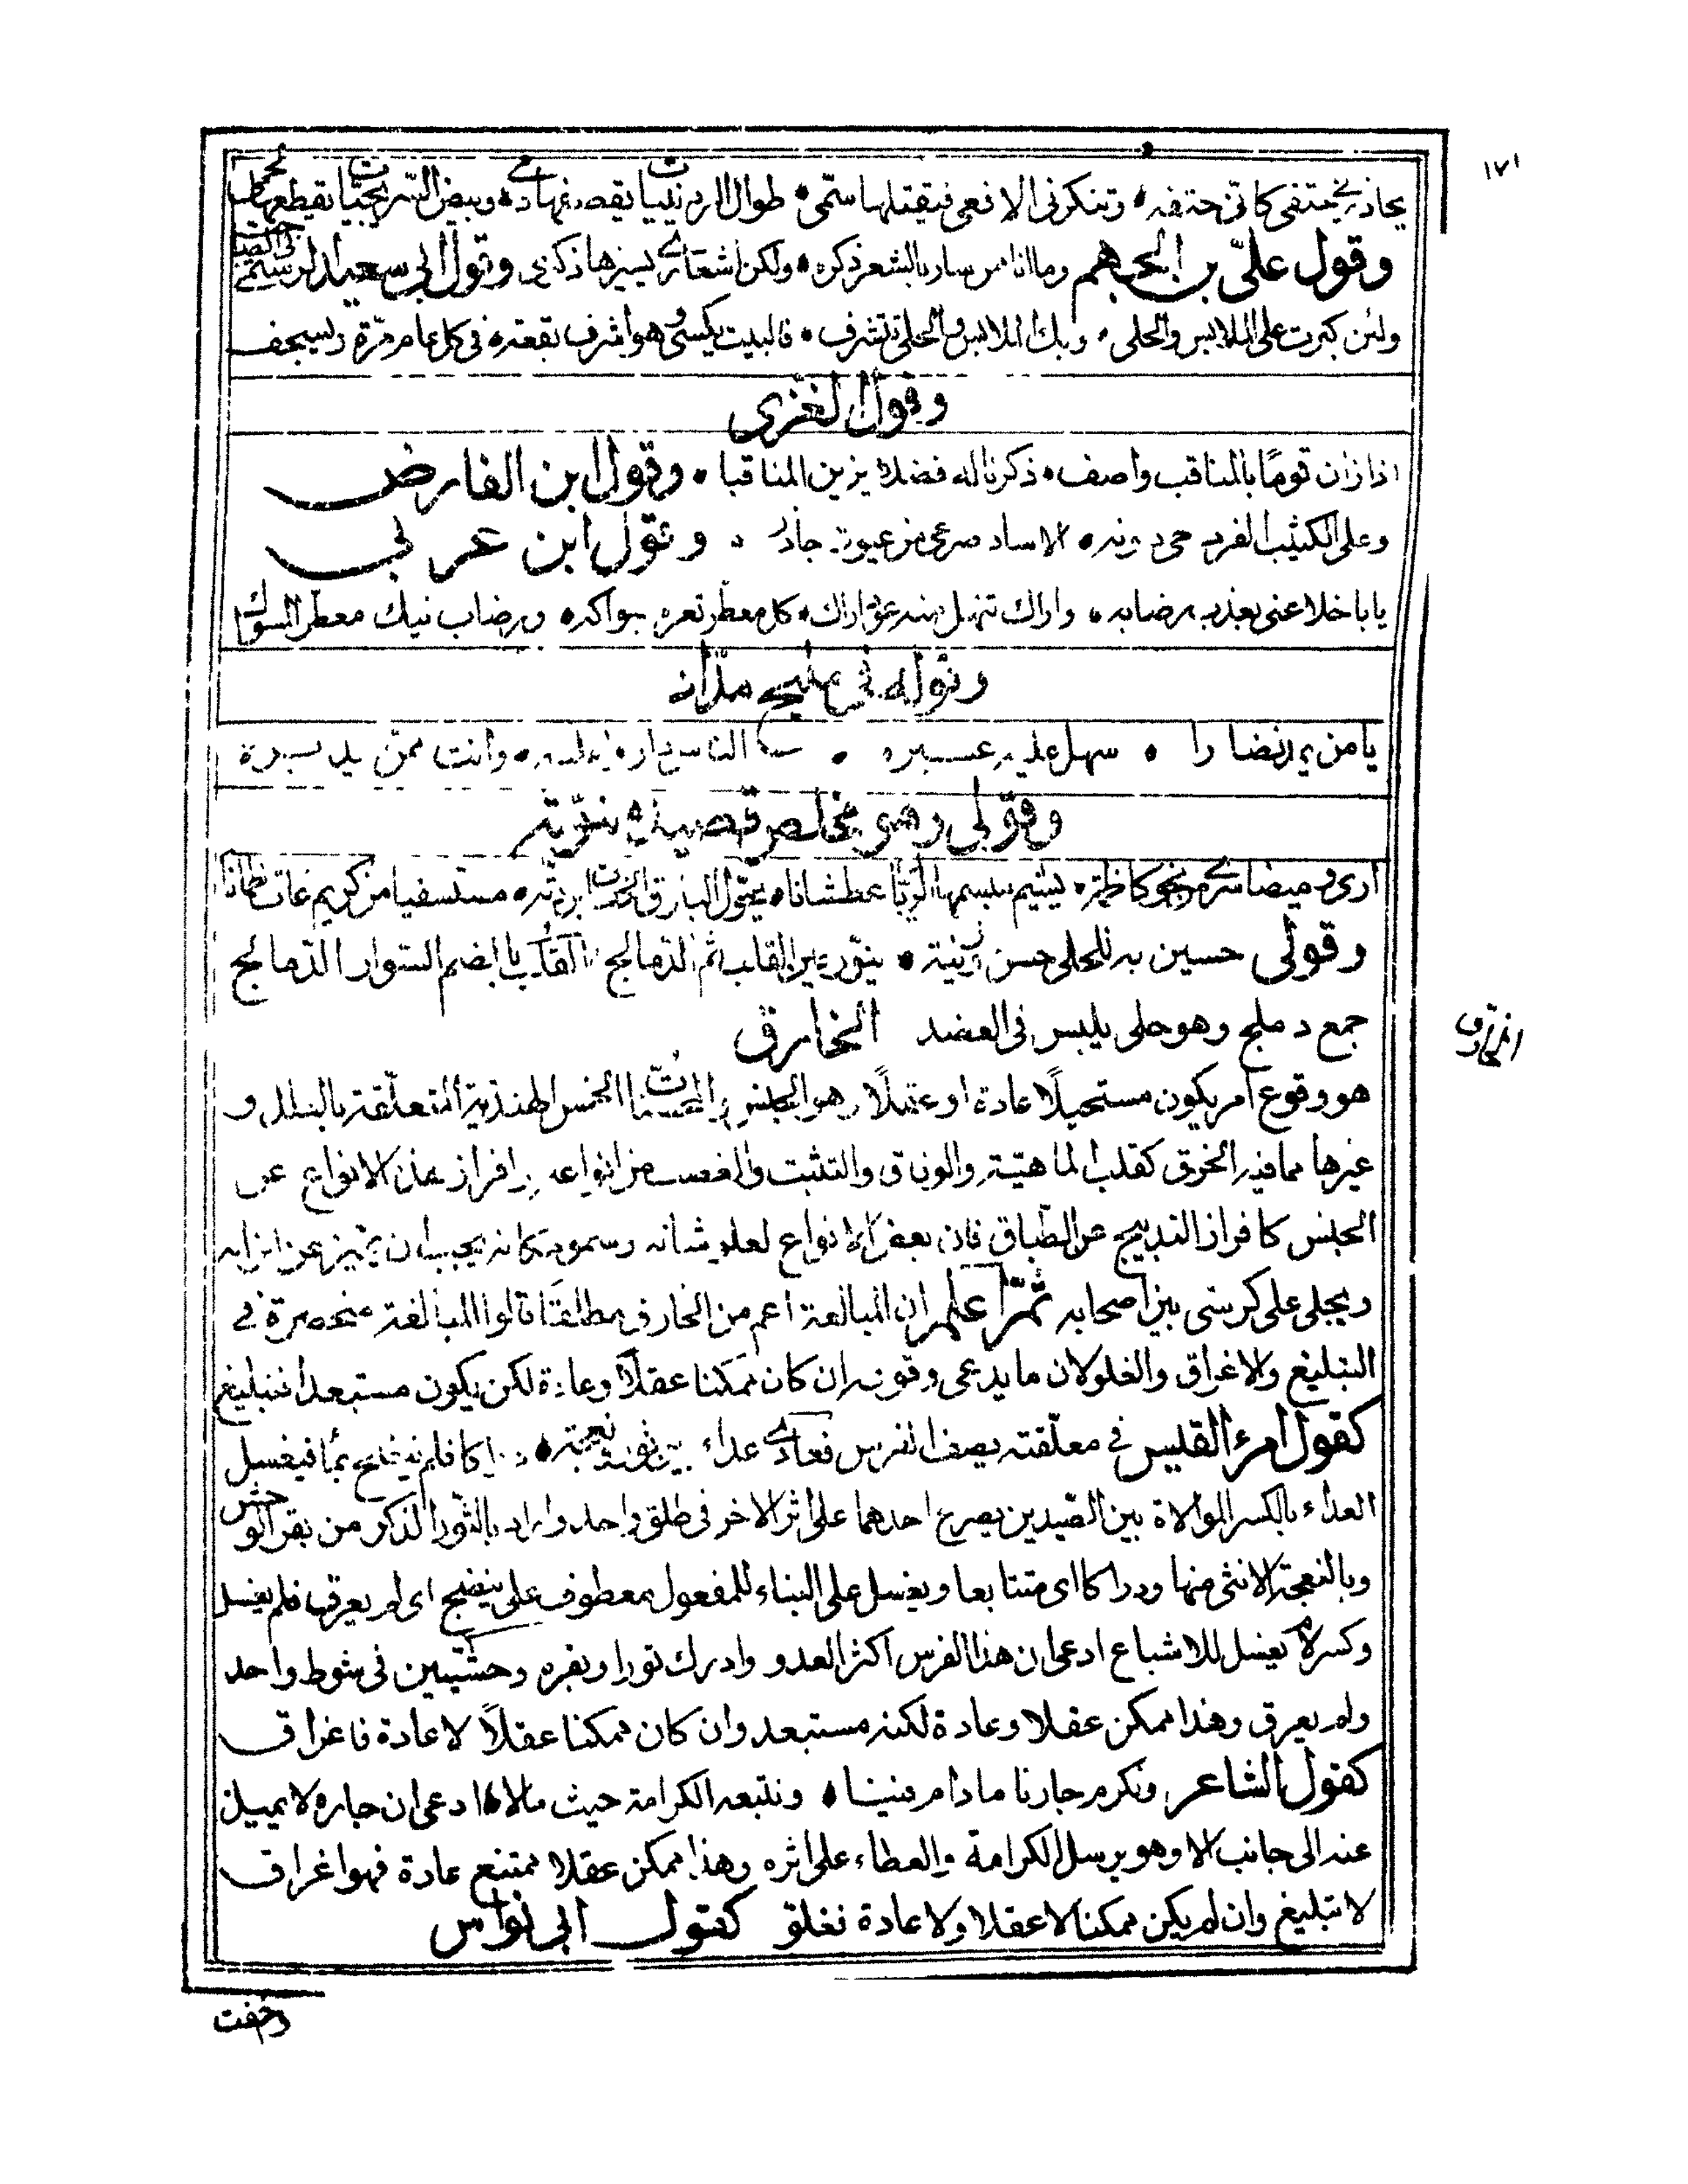 ١٧١
يحاذرني حتفي كأني حتفه وتنكرني الافعى فيقتلها سمّي طوال الردينيات يقصفها دمي وبيض السريجيات يقطعها لحمي
وقول عليّ بن الجهم وما انا ممن سار بالشعر ذكره ولكن اشعاري يسيرها ذكري وقول ابي سعيد الرستمي
ولئن كبرت على الملابس والحلى وبك الملابس والحلى تتشرف فالبيت يكسى وهو اشرف بقعة في كل عام مرّة ويسجف
وقول الغزي
اذا زان قومًا بالمناقب واصف ذكرنا له فضلا يزين المناقبا وقول ابن الفارض
وعلى الكثيب الفرد حي دونه الاساد صرعى من عيون جاذر وقول ابن عربي
يا باخلا عني بعذب رضابه واراك تنهل منه عود اراك كل معطر ثغره بسواكه ورضاب فيك معطر المسواك
وقوله في مليح
يا من سهل عليه عسيره الناس وانت ممن
وقولي وهو مخلص قصيدة نبوية
ارى وميضا سرى من نحو كاظمة
وقولي حسين به للحلي حسن زينة القلب بالضم السوار الدمالج
جمع دملج وهو حلي يلبس في العضد الخارق
الخارق
هو وقوع امر يكون مستحيلًا عادة او عقلًا وهو الجنس للمحسنات الخمس الهندية المتعلقة و
غيرها مما فيه الخرق كقلب الماهيّة والوفاق والتشبث من انواعه افراز هذه الانواع عن
الجنس كافراز التدبيج عن الطباق فان بعض الانواع لعلو شانه وسمو مكانه يجب ان يميز عن اترابه
ويجلى على كرسي بين اصحابه ثمّ اعلم ان المبالغة اعم من الخارق مطلقًا قالوا المبالغة منحصرة في
التبليغ والاغراق والغلو لان ما يدعى وقوعه ان كان ممكنا عقلًا وعادة لكن يكون مستبعدا فتبليغ
كقول امرء القيس في معلّقته يصف الفرس فعادى عداء بين ثور ونعجة دراكا فلم ينضح بماء فيغسل
العداء بالكسر الموالاة بين الصّيدين يصرع احدهما على اثر الاخر في طلق واحد واراد بالثور الذكر من بقر الوحش
وبالنعجة الانثى منها ودراكا اى متتابعا ويغسل على البناء للمفعول معطوف على ينضح اى لم يعرق فلم يغسل
وكسر لام يغسل للاشباع ادعى ان هذا الفرس اكثر العدو وادرك ثورا وبقره وحشيين في شوط واحد
ولم يعرق وهذا ممكن عقلا وعادة لكنه مستبعد وان كان ممكنا عقلاً لا عادة فاغراق
كقول الشاعر ونكرم جارنا ما دام فينا ونتبعه الكرامة حيث مالا ادعى ان جاره لا يميل
عنه الى جانب الا وهو يرسل الكرامة والعطاء على اثره وهذا ممكن عقلا ممتنع عادة فهو اغراق
لا تبليغ وان لم يكن ممكنا لا عقلا ولا عادة فغلو كقول ابي نواس
واخفت